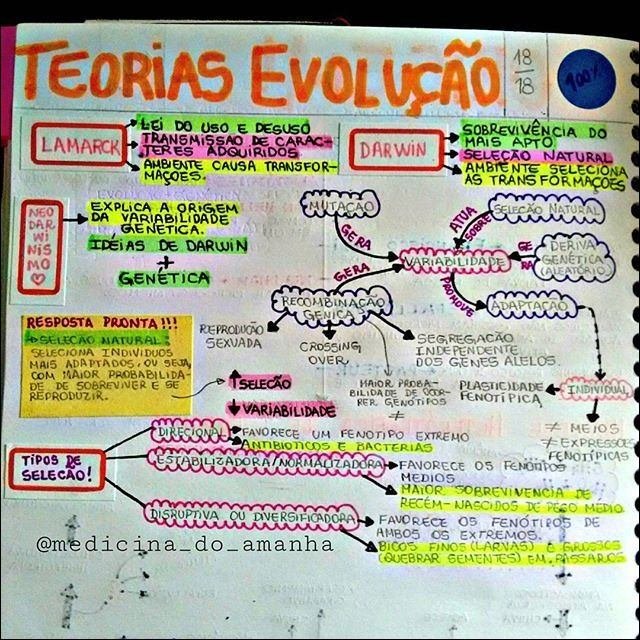 TEORIAS EVOLUÇÃO
18
18
100%
LAMARCK
LEI DO USO E DESUSO
TRANSMISSÃO DE CARAC-
TERES ADQUIRIDOS
AMBIENTE CAUSA TRANSFOR-
MAÇÕES.
DARWIN
SOBREVIVÊNCIA DO
MAIS APTO
SELEÇÃO NATURAL
AMBIENTE SELECIONA
AS TRANSFORMAÇÕES
NEO
DAR
WI
NIS
MO
EXPLICA A ORIGEM
DA VARIABILIDADE
GENÉTICA.
IDÉIAS DE DARWIN
+
GENÉTICA
MUTAÇÃO
GERA
ATUA
SOBRE
SELEÇÃO NATURAL
VARIABILIDADE
GE
RA
DERIVA
GENÉTICA
(ALEATÓRIO)
GERA
PROMOVE
RECOMBINAÇÃO
GÊNICA
ADAPTAÇÃO
REPRODUÇÃO
SEXUADA
CROSSING
OVER
SEGREGAÇÃO
INDEPENDENTE
DOS GENES ALELOS.
MAIOR PROBA-
BILIDADE DE OCOR-
RER GENÓTIPOS
≠
PLASTICIDADE
FENOTÍPICA
INDIVIDUAL
≠ MEIOS
≠ EXPRESSÕES
FENOTÍPICAS
RESPOSTA PRONTA!!!
SELEÇÃO NATURAL:
SELECIONA INDIVÍDUOS
MAIS ADAPTADOS, OU SEJA,
COM MAIOR PROBABILIDA-
DE DE SOBREVIVER E SE
REPRODUZIR.
↑ SELEÇÃO
↓ VARIABILIDADE
TIPOS DE
SELEÇÃO!
DIRECIONAL
FAVORECE UM FENÓTIPO EXTREMO
ANTIBIÓTICOS E BACTÉRIAS
ESTABILIZADORA/NORMALIZADORA
FAVORECE OS FENÓTIPOS
MÉDIOS
MAIOR SOBREVIVÊNCIA DE
RECÉM-NASCIDOS DE PESO MÉDIO
DISRUPTIVA OU DIVERSIFICADORA
FAVORECE OS FENÓTIPOS DE
AMBOS OS EXTREMOS.
BICOS FINOS (LARVAS) E GROSSOS
(QUEBRAR SEMENTES) EM PÁSSAROS
@medicina_do_amanha